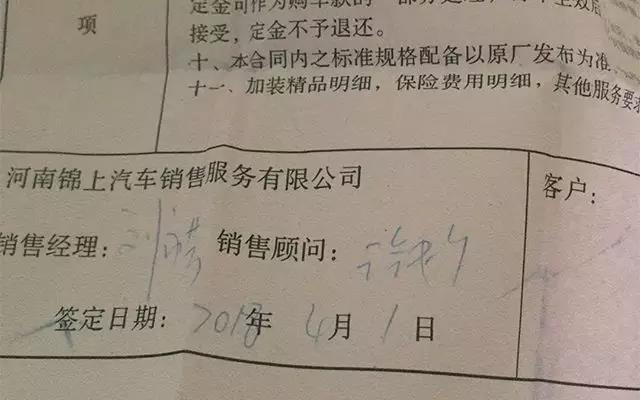 定金可作为购车款的一部分处理
项
接受，定金不予退还。
十、本合同内之标准规格配备以原厂发布为准
十一、加装精品明细，保险费用明细，其他服务要求
河南锦上汽车销售服务有限公司
客户：
销售经理： 销售顾问：
签定日期：2018年4月1日